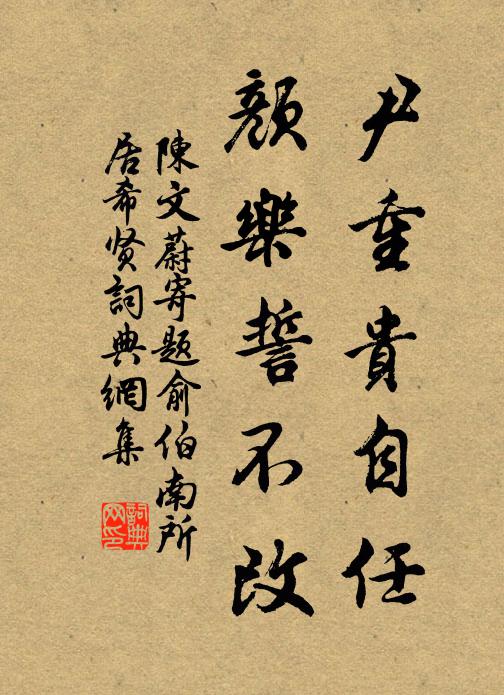 尹重貴自任
顏樂誓不改
陳文蔚寄題俞伯南所
居希贤詞典網集
詞典
网印